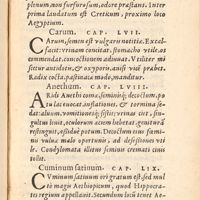 plenum, non furfurosum, odore præstans. Inter
prima laudatum est Creticum, proximo loco
Aegyptium.
Carum. CAP. LVII.
Carum, semen est vulgaris notitiæ. Excal-
facit: urinam concitat. stomacho utile: os
commendat. concoctionem adiuvat. Utiliter mi
scetur antidotis, & oxyporis. anisi vice præbet.
Radix cocta, pastinacæ modo, manditur.
Anethum. CAP. LVIII.
Aridi Anethi coma, seminisq; decoctum, po-
tu lac evocat, inflationes, & tormina se-
dat: alvum, vomitionesq; sistit: urinas ciet, sin-
gultus lenit, oculorum aciem hebetat, genituram
restinguit, assidue potum. Decoctum eius fœmi-
nis vulvæ malo opportunis, ad desessionem uti
le. Condylomata illitus seminis cremati cinis
tollit.
Cuminum sativum. CAP. LIX.
Cuminum sativum ori gratum est, sed mul
tò magis Aethiopicum, quod Hippocra-
tes regium appellavit. Secundum locum tenet Ae-